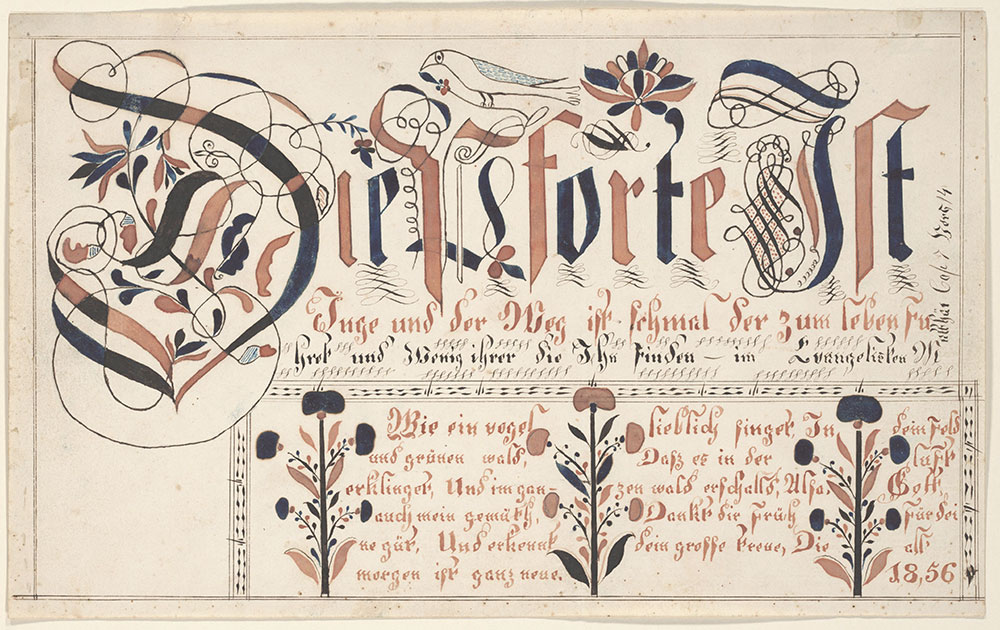 Die Pforte Ist
Enge und der Weg ist schmal der zum leben fu
hret und Wenig ihrer die Ihn finden – im Evangelisten M
atthäi Cap 7 Vers 14
Wie ein vogel lieblich singet, In dem feld
und grünen wald, Daß es in der luft
erklinget, Und im gan- zen wald erschallt, Also Gott
auch mein gemüth, Dankt dir früh für dei
ne güt, Und erkennt dein grosse treue, Die all
morgen ist ganz neue. 18,56